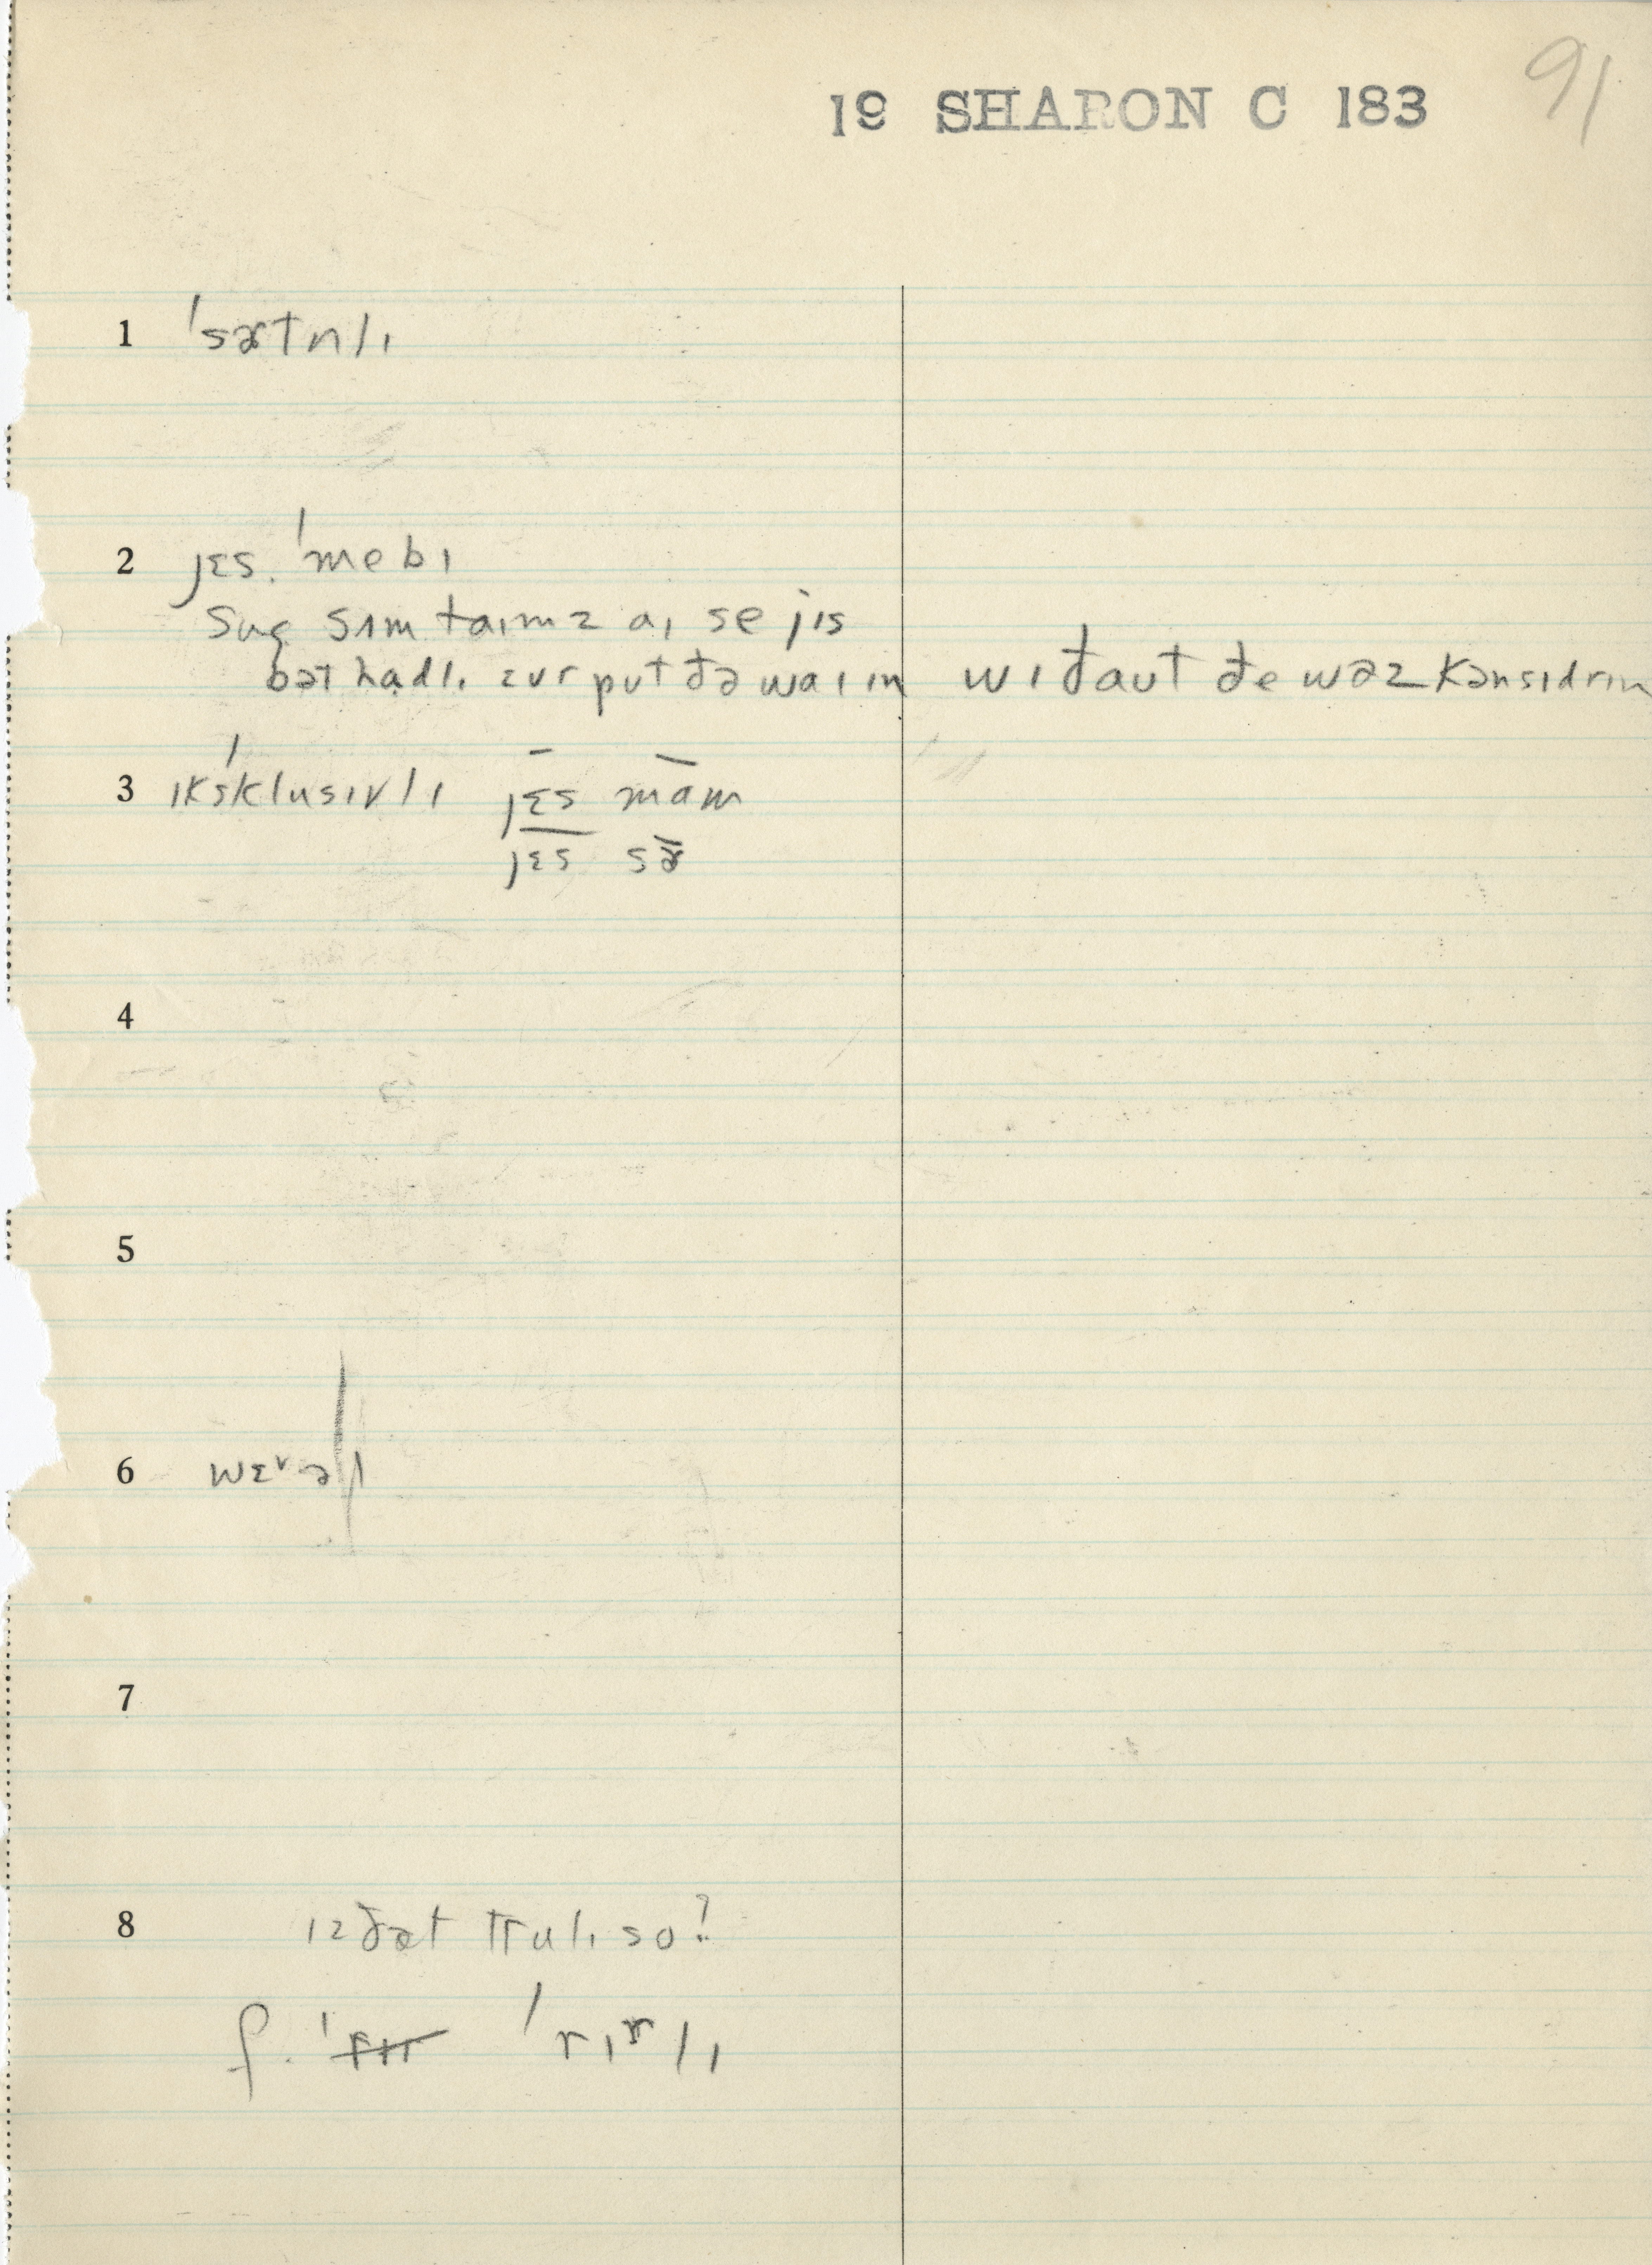 91
19 SHARON C 183
1 ˈsɚtnlɪ
2 jɛs. ˈmebɪ
sʌm taɪmz aɪ se jɪs
bət hɑdlɪ ɛvr put ðə wɑɪ ɪn wɪðaut ðe wəz kənsɪdrɪn
3 ɪkˈsklusɪvlɪ jɛ̄s mām
jɛs sɚ̄
4
5
6
7
8 ɪz ðæt trulɪ so?
f. ˈrɪrlɪ